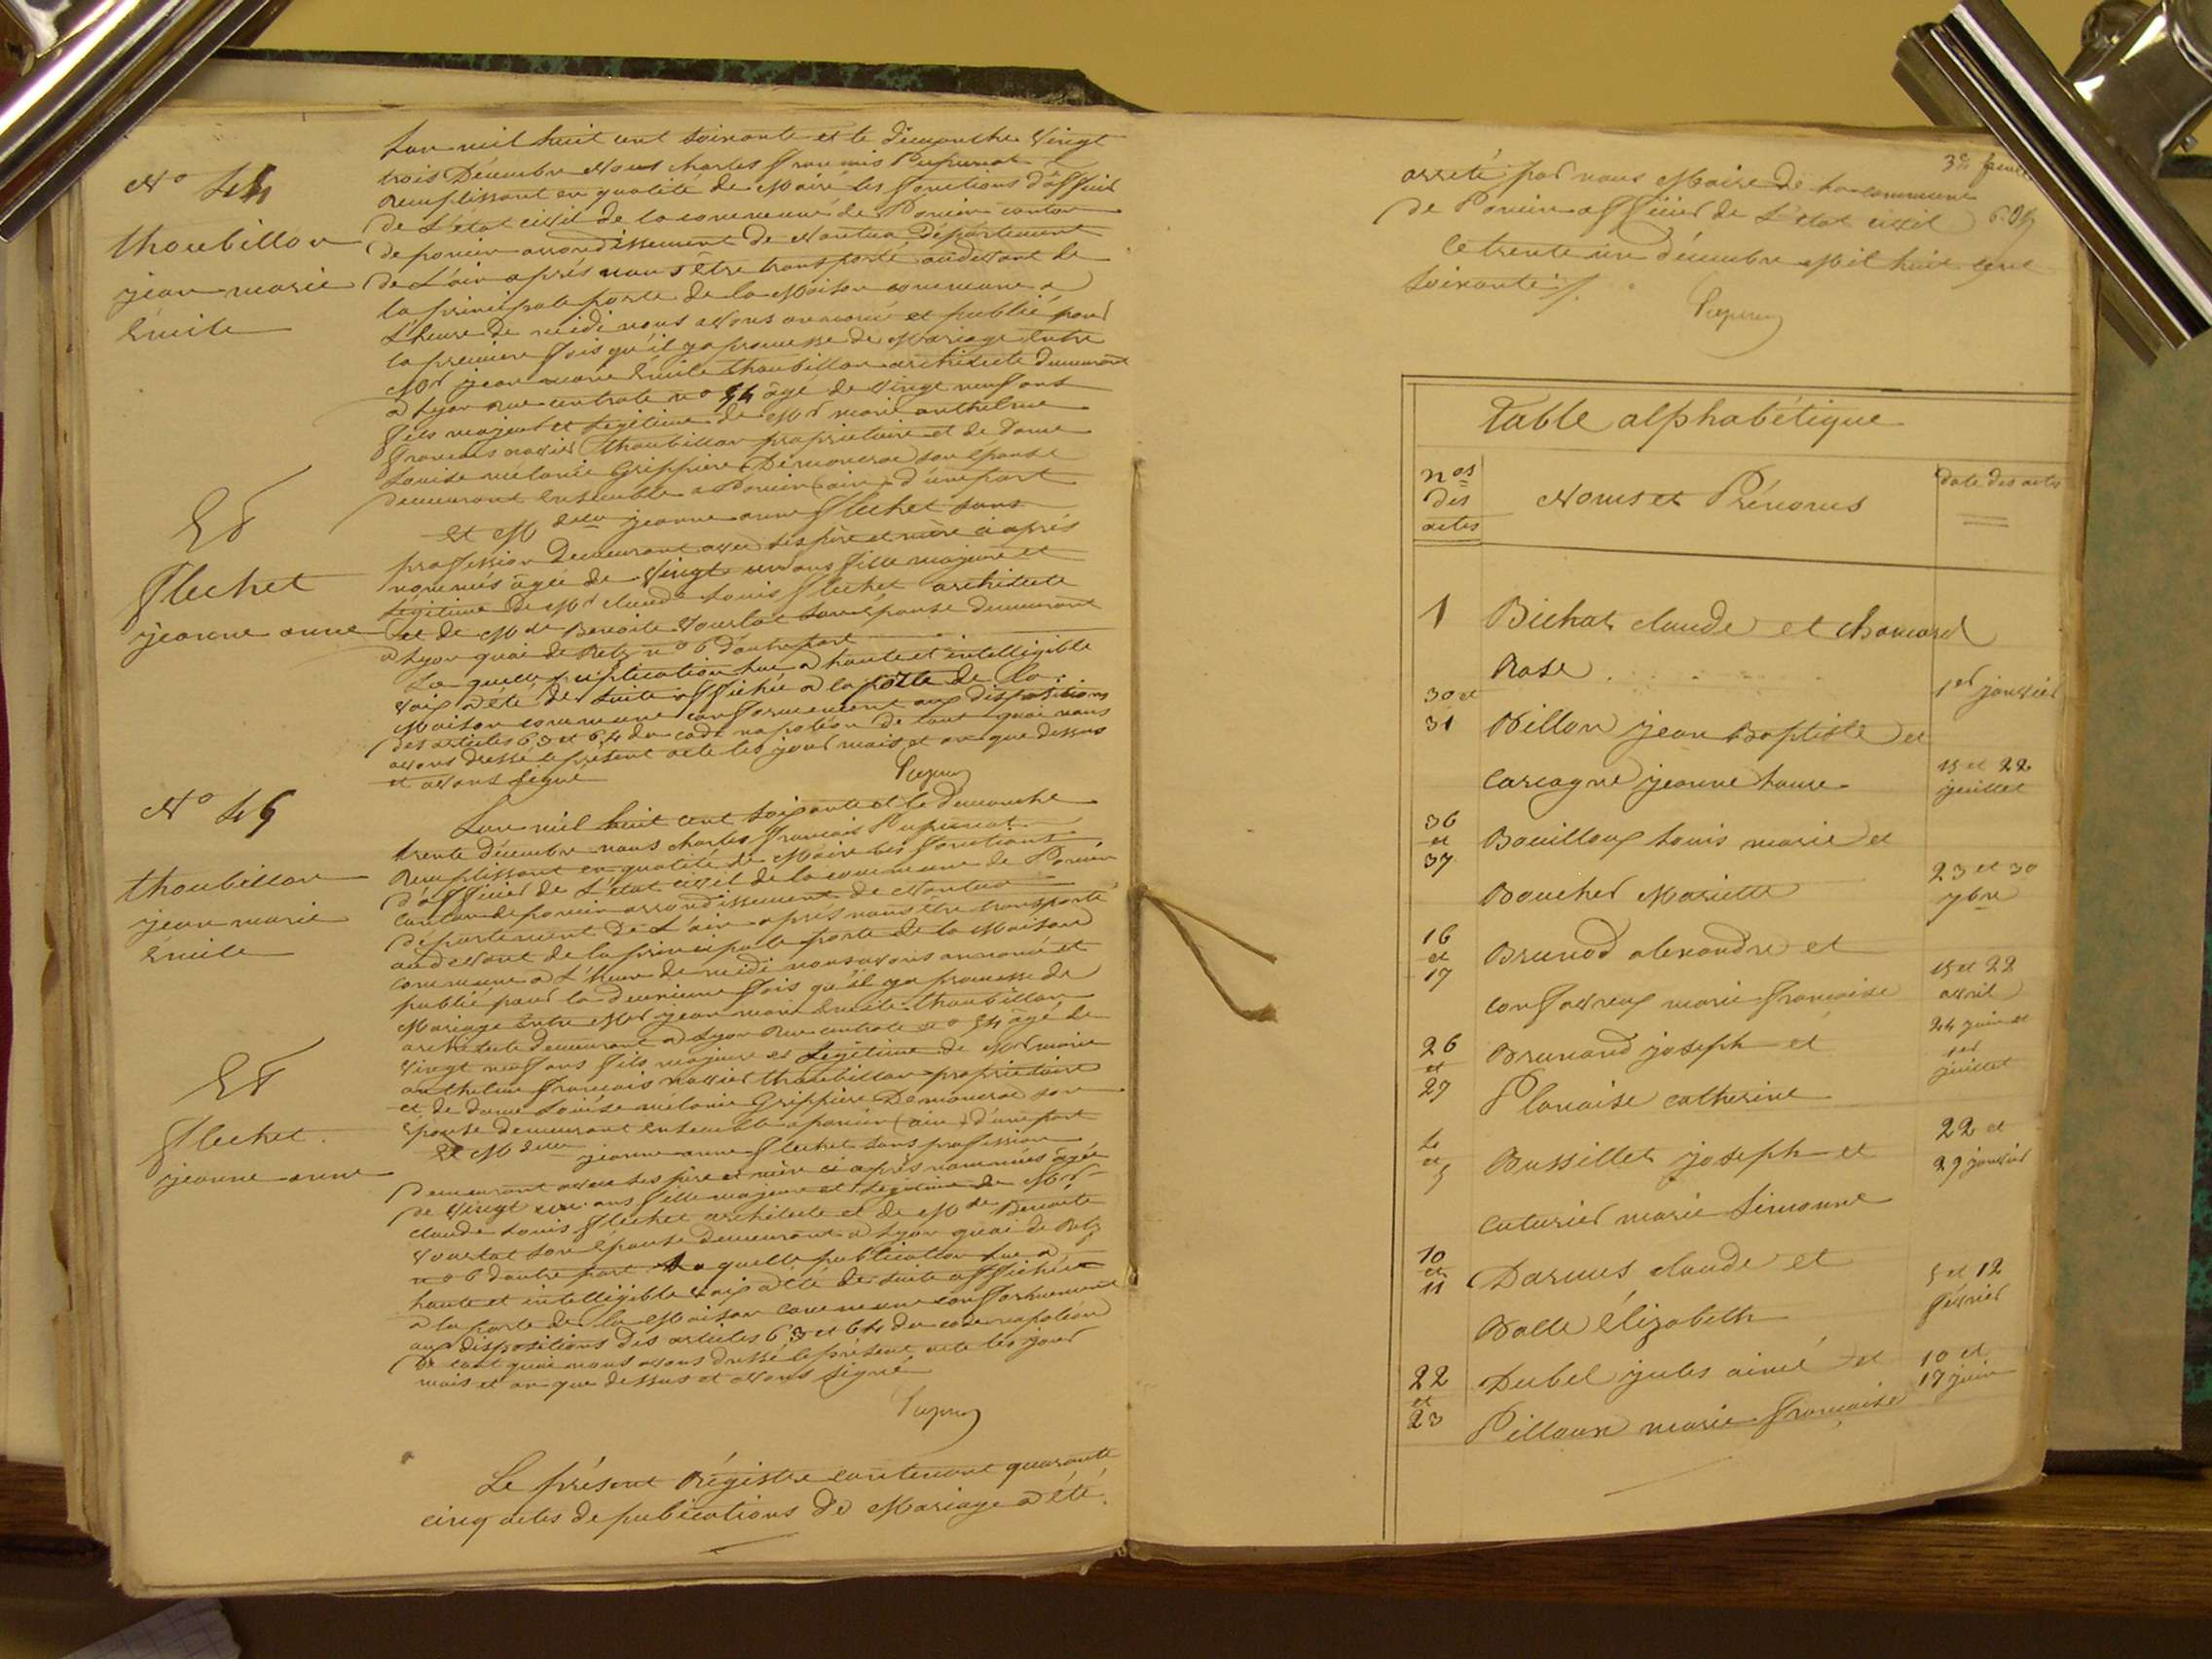 N° 44
thoubillon
jean marie
Émile
Et
flechet
jeanne anne
Lan mil huit cent soixante et le dimanche vingt
trois Décembre Nous charles francois Pupunat
Remplissant en qualité de Maire les fonctions d'officier
de L'état civil de la commune de Poncin canton
de poncin arrondissement de Nantua Département
de L'ain après nous être transporté audevant de
la principale porte de la Maison commune a
L'heure de midi nous avons annoncé et publié pour
la premiere fois qu'il ya promesse de Mariage entre
Mr jean marie Émile thoubillon architecte demeurant
a Lyon rue centrale no 54 âgé de vingt neuf ans
fils majeur et Légitime de Mr marie anthelme
francois xavier thoubillon propriétaire et de Dame
Louise mélanie Grippiere Demoncroc son épouse
demeurant ensemble a Poncin (ain) d'une part
et Mdelle jeanne anne flechet sans
profession Demeurant avec ses père et mère ci après
nommés âgée de vingt un ans fille majeure et
Légitime de Mr claude Louis flechet architecte
et de Mde Benoite Vourlat son épouse demeurant
a Lyon quai de Retz no 6 dautre part
La quelle publication lue a haute et intelligible
voix a été de suite affichée a la porte de la
Maison commune conformement aux dispositions
des articles 63 et 64 du code napoléon de tout quoi nous
avons dressé le présent acte les jour mois et an que dessus
et avons signé
N° 45
thoubillon
jean marie
Émile
Et
flechet
jeanne anne
Lan mil huit cent soixante et le Dimanche
trente décembre nous charles francois Pupunat
Remplissant en qualité de Maire les fonctions
d'officier de L'état civil de la commune de Poncin
canton de poncin arrondissement de Nantua
département de L'ain après nous être transporté
audevant de la principale porte de la Maison
commune a L'heure de midi nous avons annoncé et
publié pour la deuxieme fois qu'il ya promesse de
Mariage entre Mr jean marie Émile thoubillon
architecte demeurant a Lyon Rue centrale no 54 âgé de
vingt neuf ans fils majeure et Légitime de Mr marie
anthelme francois xavier thoubillon propriétaire
et de dame Louise mélanie Grippiere Demoncroc son
épouse demeurant ensemble a poncin (ain) d'une part
Et Mdelle jeanne anne flechet sans profession
Demeurant avec ses père et mère ci après nommés âgée
de vingt un ans fille majeure et Légitime de Mr
claude Louis flechet architecte et de Mde Benoite
Vourlat son épouse demeurant a Lyon quai de Retz
no 6 dautre part La quelle publication lue a
haute et intelligible voix a été de suite affichée
a la porte de la Maison commune conformement
aux dispositions des articles 63 et 64 du code napoléon
De tout quoi nous avons dressé le présent acte les jour
mois et an que dessus et avons signé
Le présent Régistre contenant quarante
cinq actes de publications de Mariage a été
arreté par nous Maire de la commune
de Poncin officier de L'état civil
le trente un décembre Mil huit cent
soixante
Table alphabétique
nos des actes
Noms et Prénoms
date des actes
1 Bichat claude et chanard
Rose 1er janvier
30 et 31 Billon jean Baptiste et
carcagne jeanne Laure 15 et 22 juillet
36 et 37 Bouilloux Louis marie et
Boucher Mariette 23 et 30 7bre
16 et 17 Brunod alexandre et
confavreux marie francoise 15 et 22 avril
26 et 27 Brunand joseph et
Planaise catherine 24 juin et 1er juillet
4 et 5 Bussillet joseph et
cuturier marie Simonne 22 et 29 janvier
10 et 11 Darmes claude et
Balle élizabeth 5 et 12 février
22 et 23 Dubel jules aimé et
Pilloux marie françoise 10 et 17 juin